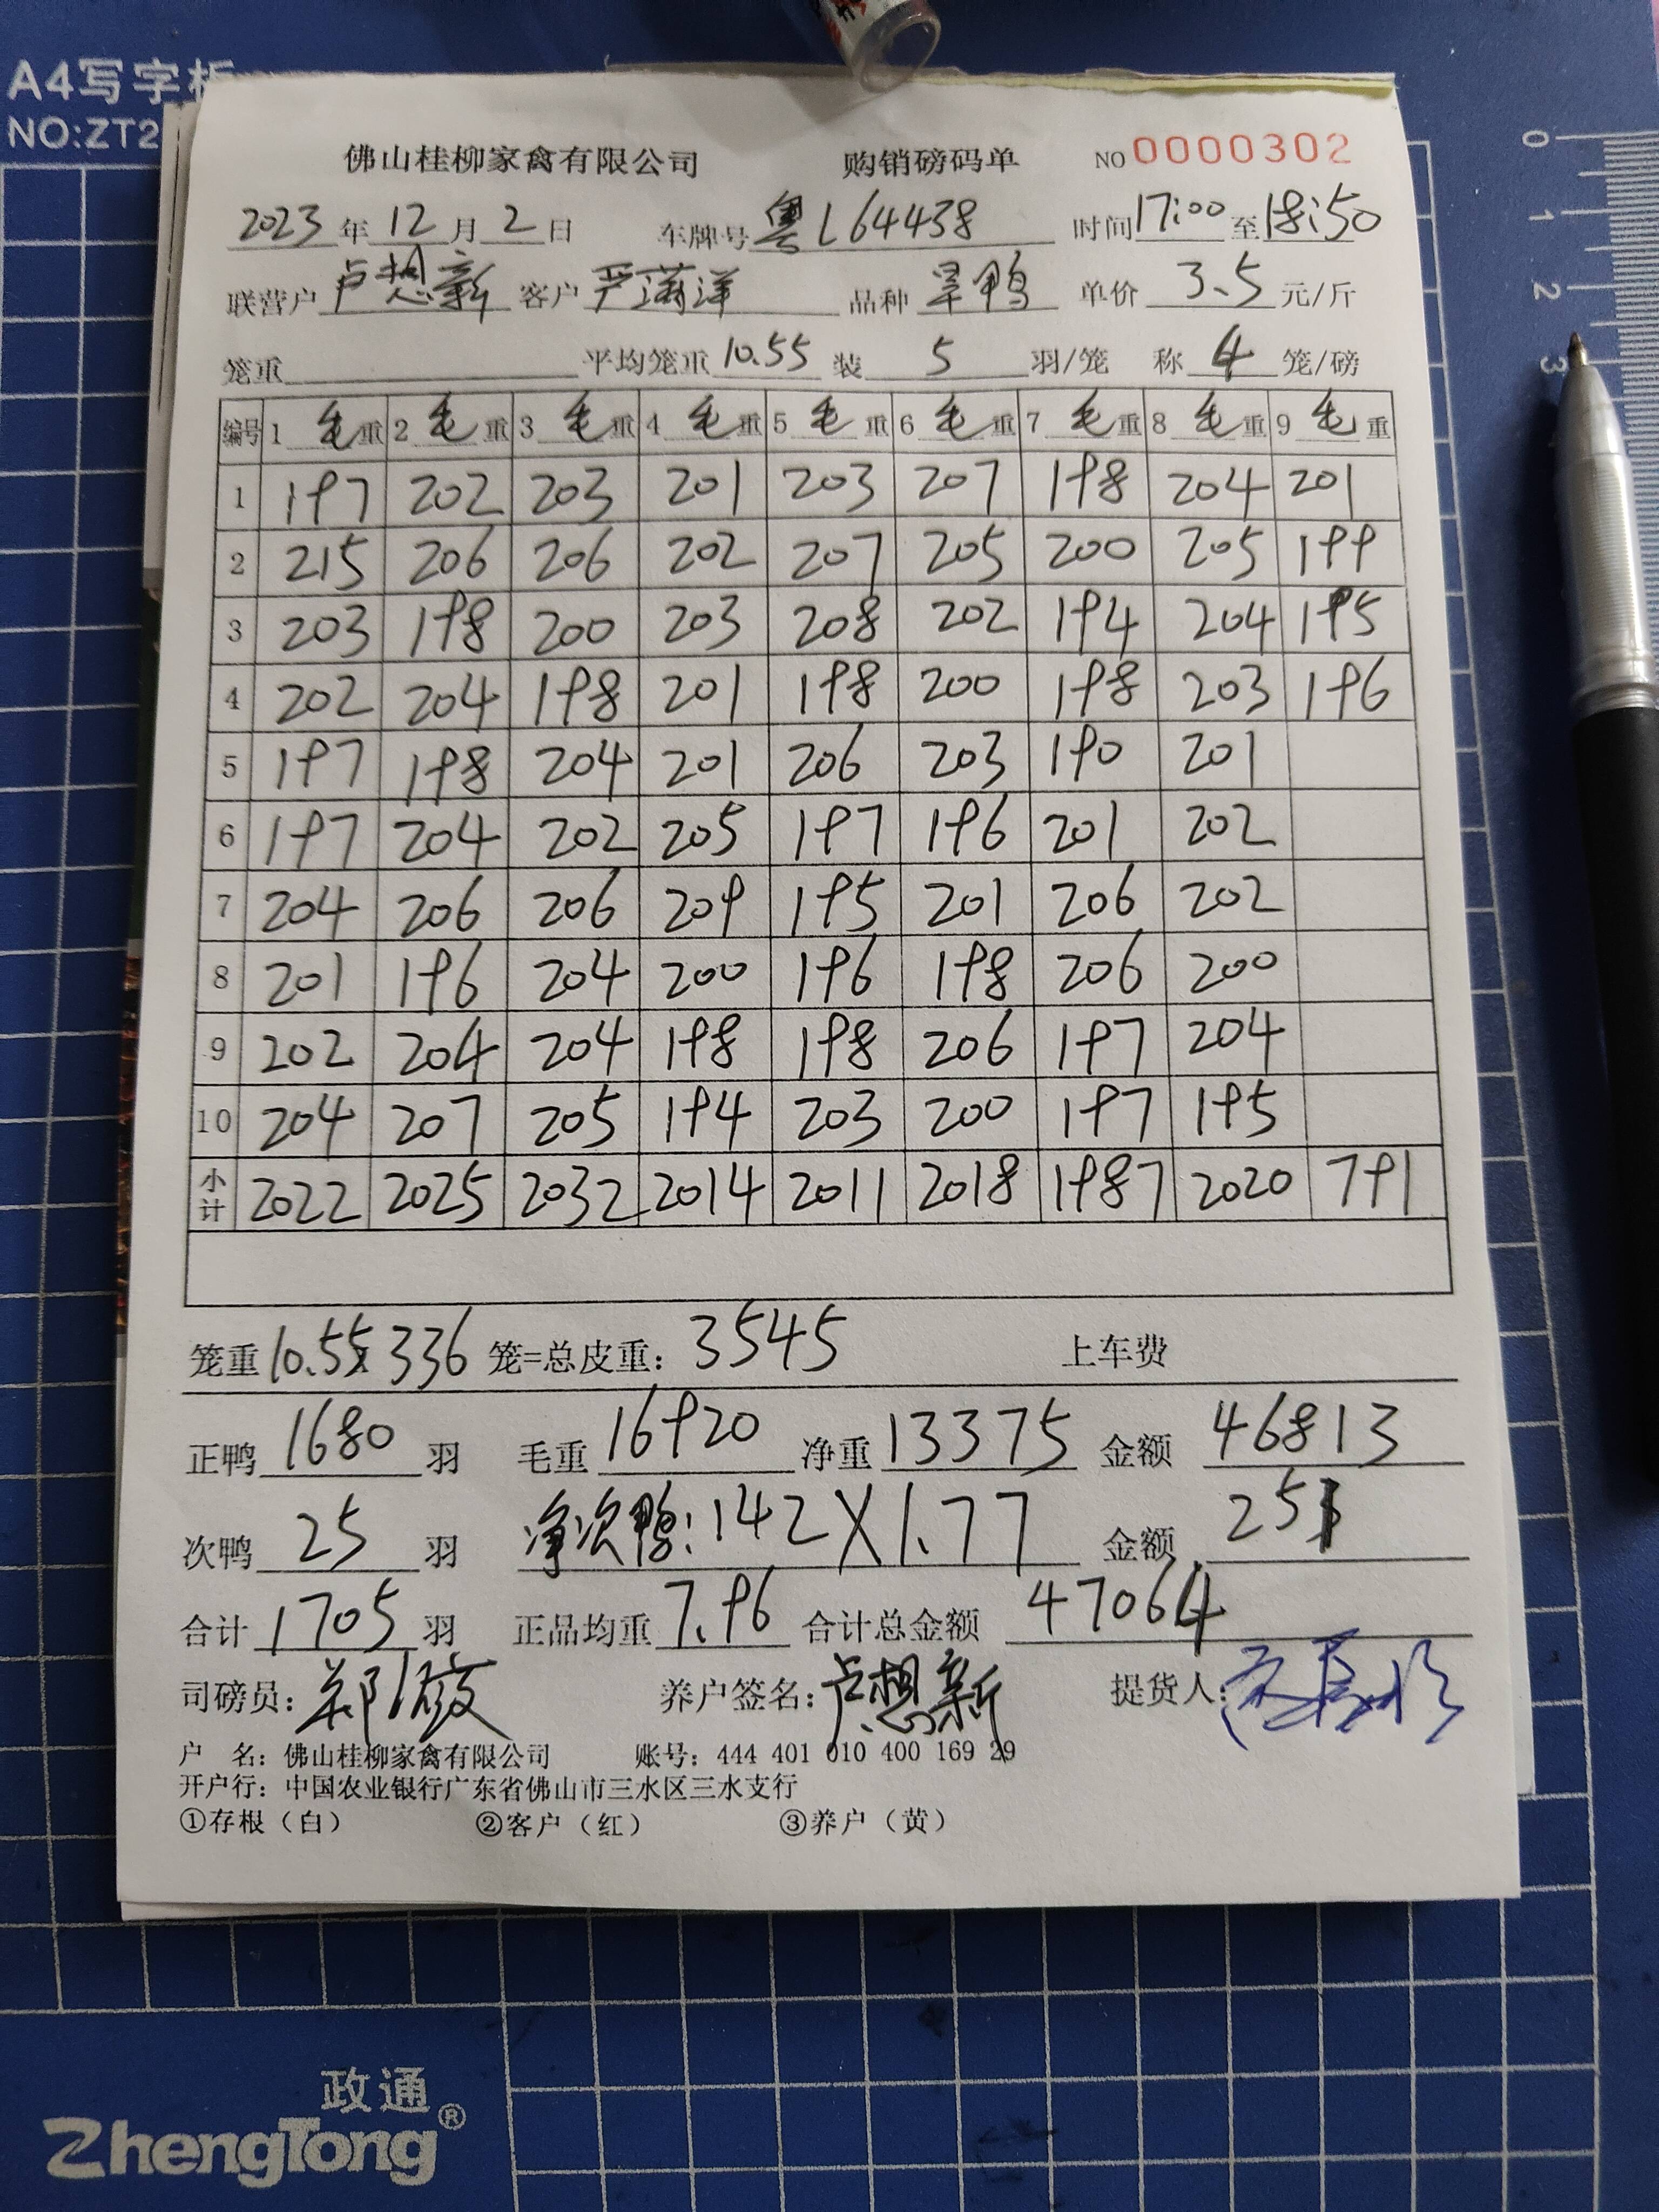 A4写字板
NO:ZT2
佛山桂柳家禽有限公司 购销磅码单 NO 0000302
2023 年 12 月 2 日 车牌号 粤L64438 时间 17:00 至 18:50
联营户 卢想新 客户 严满洋 品种 旱鸭 单价 3.5 元/斤
笼重 平均笼重 10.55 装 5 羽/笼 称 4 笼/磅
编号 1 毛重 2 毛重 3 毛重 4 毛重 5 毛重 6 毛重 7 毛重 8 毛重 9 毛重
1 197 202 203 201 203 207 198 204 201
2 215 206 206 202 207 205 200 205 199
3 203 198 200 203 208 202 194 204 195
4 202 204 198 201 198 200 198 203 196
5 197 198 204 201 206 203 190 201
6 197 204 202 205 197 196 201 202
7 204 206 206 209 195 201 206 202
8 201 196 204 200 196 198 206 200
9 202 204 204 198 198 206 197 204
10 204 207 205 194 203 200 197 195
小计 2022 2025 2032 2014 2011 2018 1987 2020 791
笼重 10.55x 336 笼=总皮重: 3545 上车费
正鸭 1680 羽 毛重 16920 净重 13375 金额 46813
次鸭 25 羽 净次鸭: 142 X 1.77 金额 251
合计 1705 羽 正品均重 7.96 合计总金额 47064
司磅员: 郑 养户签名: 卢想新 提货人:
户 名: 佛山桂柳家禽有限公司 账号: 444 401 010 400 169 29
开户行: 中国农业银行广东省佛山市三水区三水支行
①存根（白） ②客户（红） ③养户（黄）
0
1
2
3
政通
ZhengTong®